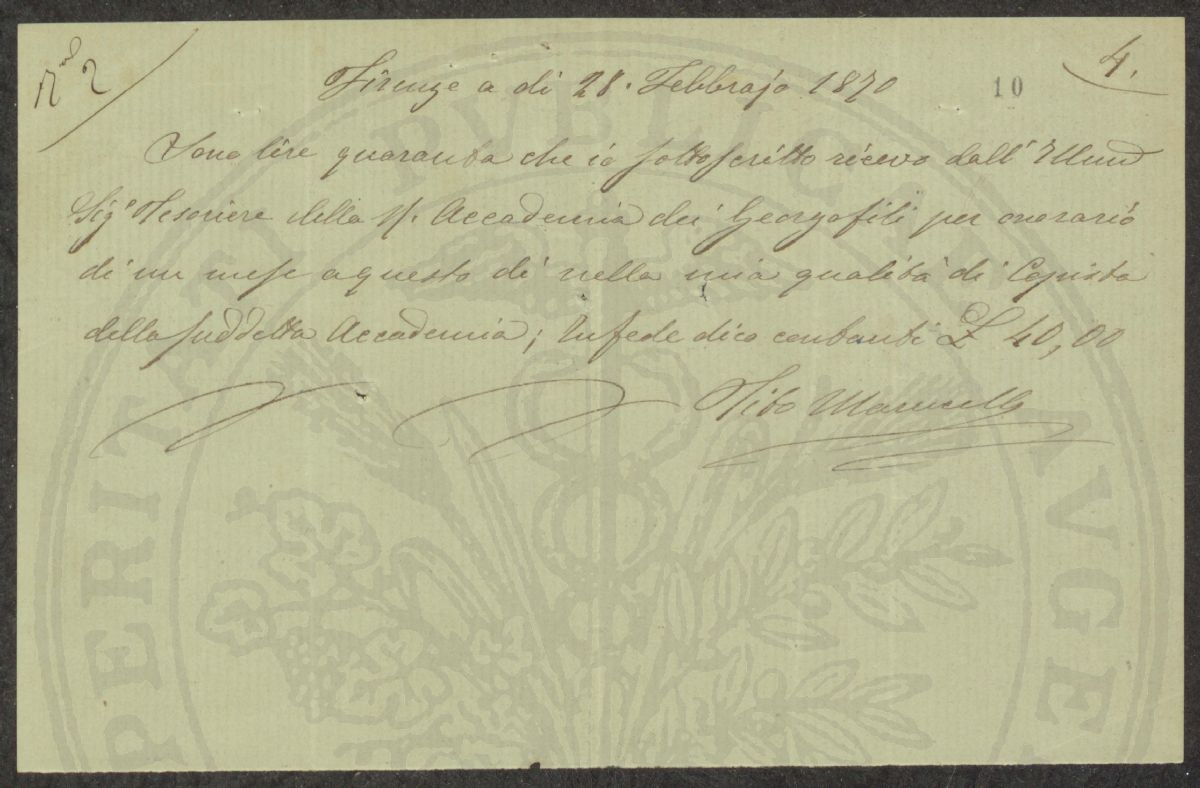 N.º 2
4.
10
Firenze a dì 28. Febbrajo 1870
Sono lire quaranta che io sottoscritto ricevo dall'
Sig.e Tesoriere della R. Accademia dei Georgofili per onorario
di un mese a questo dì nella mia qualità di Copista
della sud'detta Accademia; In fede dico contanti £ 40,00
Tito
PERITATI PVBLICAE AVGE